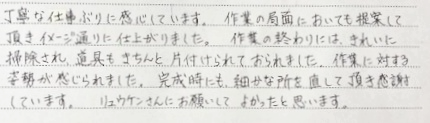 丁寧な仕事ぶりに感心しています。 作業の局面においても提案して
頂きイメージ通りに仕上がりました。 作業の終わりには、きれいに
掃除され、道具もきちんと片付けられておられました。作業に対する
姿勢が感じられました。完成時にも、細かな所を直して頂き感謝
しています。 リュウケンさんにお願いして よかったと思います。